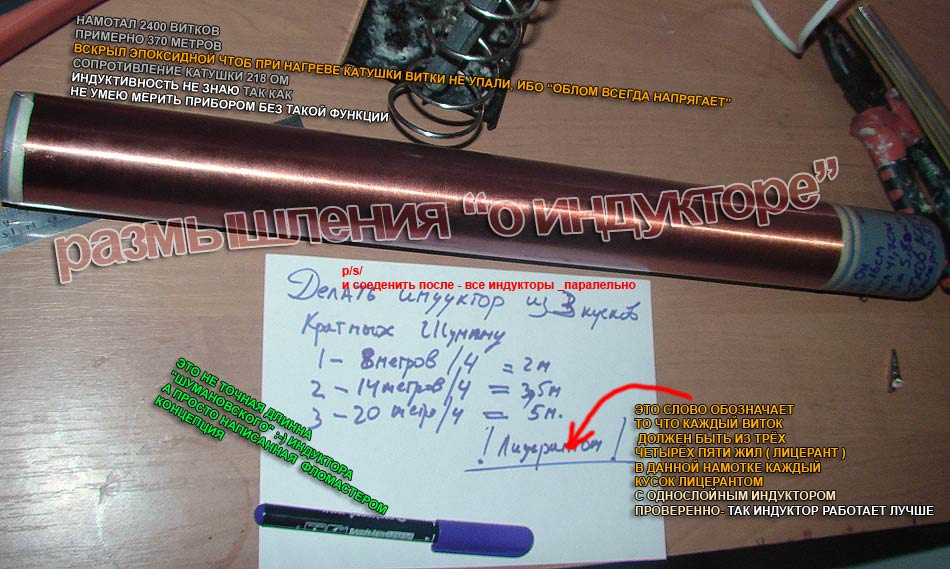 НАМОТАЛ 2400 ВИТКОВ
ПРИМЕРНО 370 МЕТРОВ
ВСКРЫЛ ЭПОКСИДНОЙ ЧТОБ ПРИ НАГРЕВЕ КАТУШКИ ВИТКИ НЕ УПАЛИ, ИБО "ОБЛОМ ВСЕГДА НАПРЯГАЕТ"
СОПРОТИВЛЕНИЕ КАТУШКИ 218 ОМ
ИНДУКТИВНОСТЬ НЕ ЗНАЮ ТАК КАК
НЕ УМЕЮ МЕРИТЬ ПРИБОРОМ БЕЗ ТАКОЙ ФУНКЦИИ
размышления "о индукторе"
p/s/
и соеденить после - все индукторы _паралельно
Делать индуктор из 3 кусков
Кратных Шуману
1 - 8 метров /4 = 2м
2 - 14 метров /4 = 3,5м
3 - 20 метр /4 = 5м.
! Лицерантом !
ЭТО НЕ ТОЧНАЯ ДЛИННА
"ШУМАНОВСКОГО" ;-) ИНДУКТОРА
А ПРОСТО НАПИСАННАЯ ФЛОМАСТЕРОМ
КОНЦЕПЦИЯ
ЭТО СЛОВО ОБОЗНАЧАЕТ
ТО ЧТО КАЖДЫЙ ВИТОК
ДОЛЖЕН БЫТЬ ИЗ ТРЁХ
ЧЕТЫРЕХ ПЯТИ ЖИЛ ( ЛИЦЕРАНТ )
В ДАННОЙ НАМОТКЕ КАЖДЫЙ
КУСОК ЛИЦЕРАНТОМ
С ОДНОСЛОЙНЫМ ИНДУКТОРОМ
ПРОВЕРЕННО- ТАК ИНДУКТОР РАБОТАЕТ ЛУЧШЕ